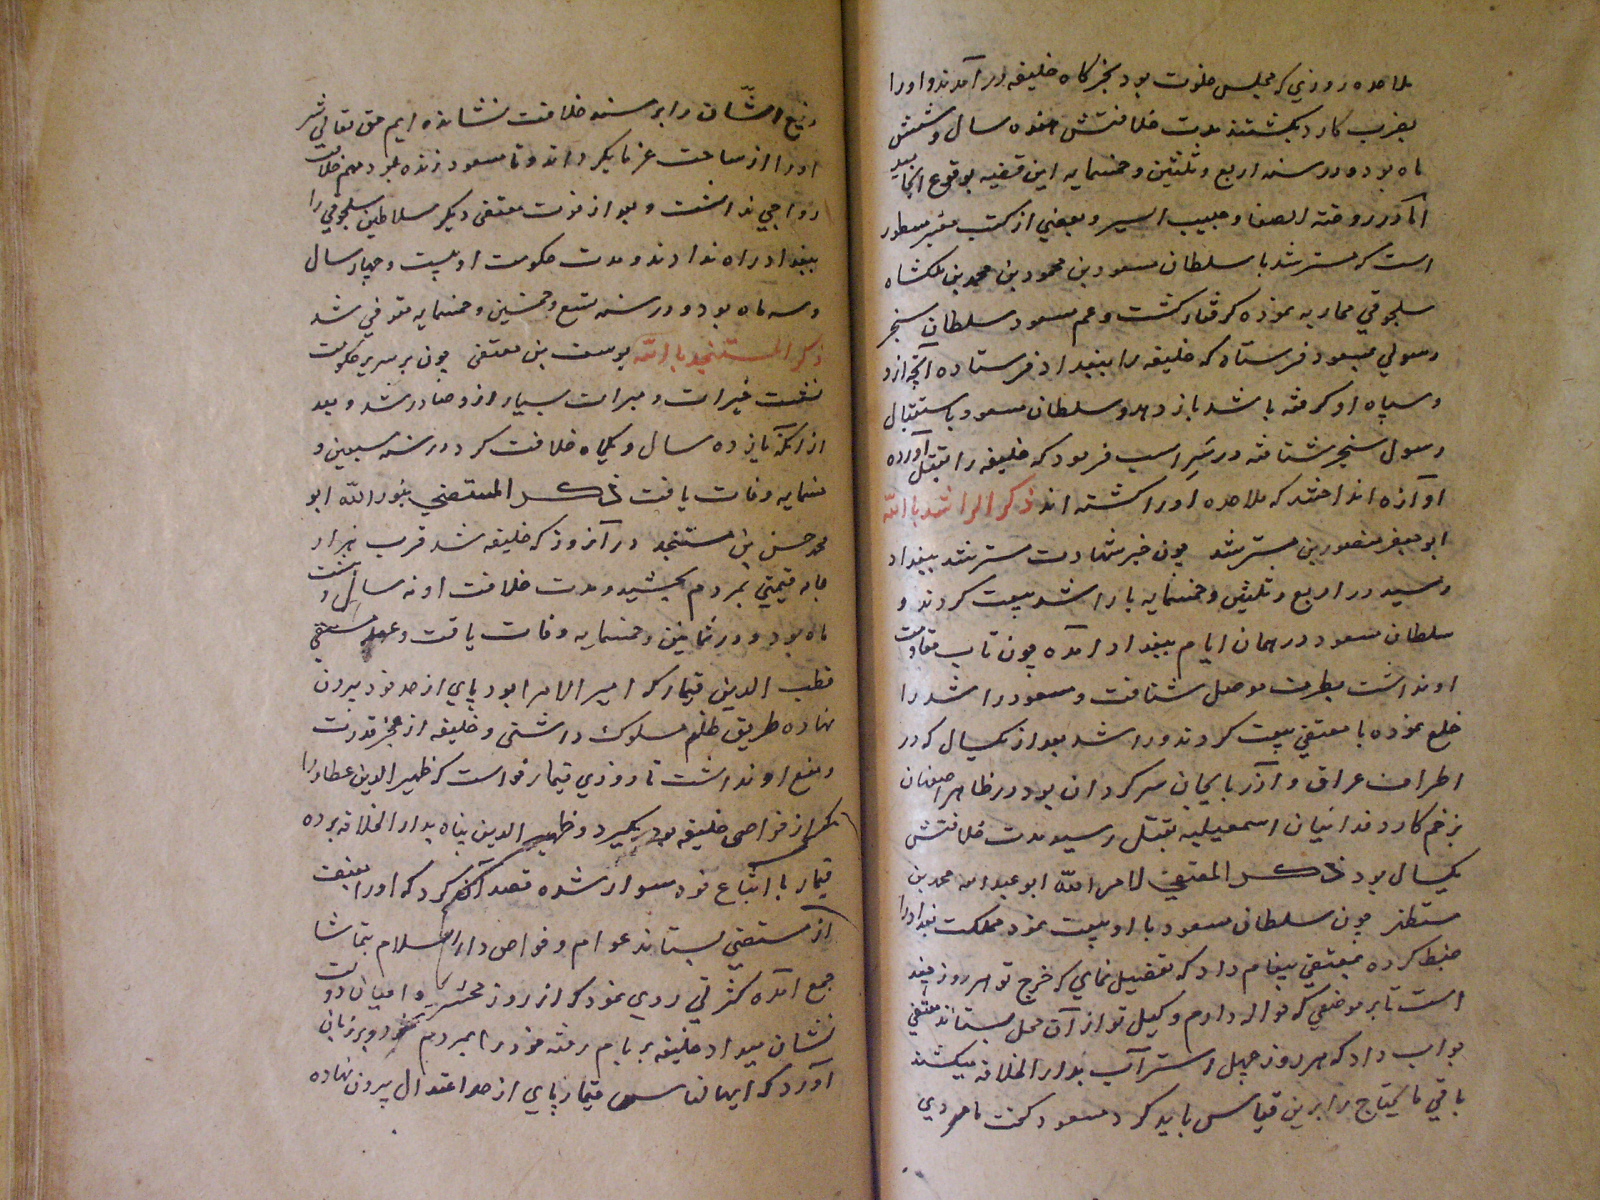 ملاحده روزی که مجلس خلوت بود بخرکاه خلیفه در آمدند و اورا
بضرب کارد بکشتند مدت خلافتش هفده سال و شش
ماه بود و در سنه اربع و ثلثین و خمسمایه این قضیه بوقوع انجامید
اما در روضة الصفا و حبیب السیر و بعضی از کتب معتبر مسطور
است که مسترشد با سلطان مسعود بن محمود بن محمد بن ملکشاه
سلجوقی محاربه نموده کرفتار کشت و عم مسعود سلطان سنجر
رسولی بمسعود فرستاد که خلیفه را ببغداد فرستاده آنچه از و
و سپاه او کرفته باشد باز دهد و سلطان مسعود باستقبال
رسول سنجر شتافته در سر اسب فرمود که خلیفه را بقتل آورده
آوازه انداختند که ملاحده اورا کشته اند ذکر الراشد بالله
ابو جعفر منصور بن مسترشد چون خبر شهادت مسترشد ببغداد
رسید در اربع و ثلثین و خمسمایه با راشد بیعت کردند و
سلطان مسعود در همان ایام ببغداد آمده چون تاب مقاومت
او نداشت بطرف موصل شتافت و مسعود راشد را
خلع نموده با مقتفی بیعت کردند و راشد بعد از یکسال که در
اطراف عراق و آذربایجان سرکردان بود در ظاهر اصفهان
بزخم کارد فدائیان اسمعیلیه بقتل رسید مدت خلافتش
یکسال بود ذکر المقتفی لامر الله ابو عبد الله محمد بن
مستظهر چون سلطان مسعود با او بیعت نمود مملکت بغداد را
ضبط کرده بمقتفی پیغام داد که تفصیل نمای که خرج تو هر روز چند
است تا بر موضعی که حواله دارم وکیل تو از آن محل بستاند مقتفی
جواب داد که هر روز چهل استر آب بدار الخلافه میکشند
باقی ما یحتاج را برین قیاس باید کرد مسعود کفت ما مردی
رفیع الشان را بر مسند خلافت نشانده ایم حق تعالی شر
اورا از ساحت عز ما بکرداند و تا مسعود زنده بود مهم خلافت
رواجی نداشت و بعد از فوت مقتفی دیکر سلاطین سلجوقی را
ببغداد راه ندادند و مدت حکومت او بیست و چهار سال
و سه ماه بود و در سنه تسع و خمسین و خمسمایه متوفی شد
ذکر المستنجد بالله یوسف بن مقتفی چون بر سریر حکومت
نشست خیرات و مبرات بسیار از و صادر شد و بعد
از آنکه یازده سال و یکماه خلافت کرد در سنه سبعین و
خمسمایه وفات یافت ذکر المستضی بنور الله ابو
محمد حسن بن مستنجد در آنروز که خلیفه شد قرب هزار
جامه قیمتی بمردم بخشید و مدت خلافت او نه سال و هشت
ماه بود و در ثمانین و خمسمایه وفات یافت و عهد مستضی
قطب الدین قیمار که امیر الامرا بود پای از حد خود بیرون
نهاده طریق ظلم مسلوک داشتی و خلیفه از عجز قدرت
دفع او نداشت تا روزی قیمار خواست که ظهیر الدین عطار را
که از خواص خلیفه بود بگیرد و ظهیر الدین پناه بدار الخلافه برده
قیمار با اتباع خود سوار شده قصد آن کرد که اورا بعنف
از مستضی بستاند عوام و خواص دار السلام بتماشا
جمع آمده کثرتی روی نمود که از روز محشر و اعیان دولت
نشان میداد خلیفه بر بام رفته خود را بمردم نمود و بر زبان
آورد که ایها الناس قیمار پای از حد اعتدال بیرون نهاده